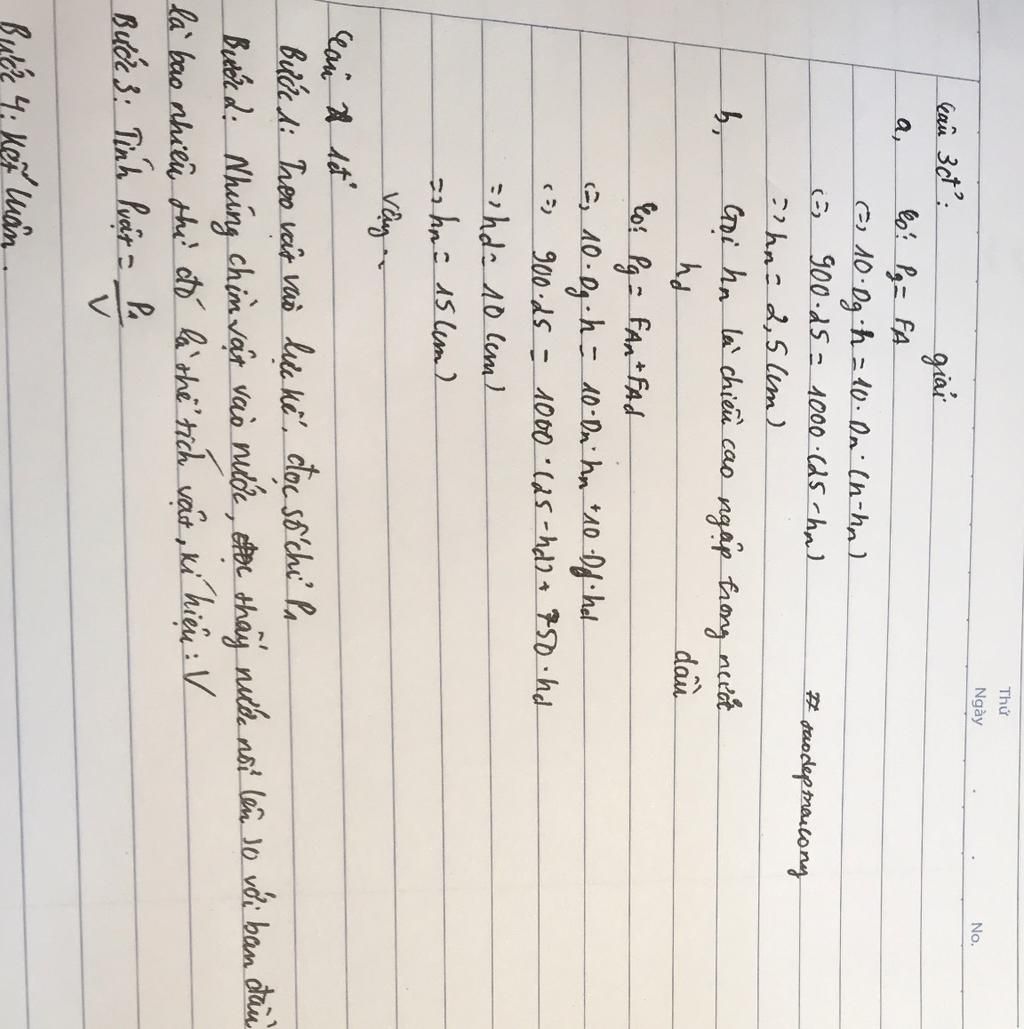 Thứ
Ngày No.
Câu 3đ: giải
a, Có: Pg = FA
(=) 10.Dg.h = 10.Dn.(h-hn)
(=) 900.25 = 1000.(25-hn)
=> hn = 2,5 (cm) #saodepmaicong
b, Gọi hn là chiều cao ngập trong nước
hd dầu
Có: Pg = FAn + FAd
(=) 10.Dg.h = 10.Dn.hn + 10.Dd.hd
(=) 900.25 = 1000.(25-hd) + 750.hd
=> hd = 10 (cm)
=> hn = 15 (cm)
Vậy ~
Câu 1đ
Bước 1: Treo vật vào lực kế, đọc số chỉ P1
Bước 2: Nhúng chìm vật vào nước, thấy nước nổi lên so với ban đầu
là bao nhiêu thì đó là thể tích vật, kí hiệu: V
Bước 3: Tính Pvật = P1/V
Bước 4: Kết luận.